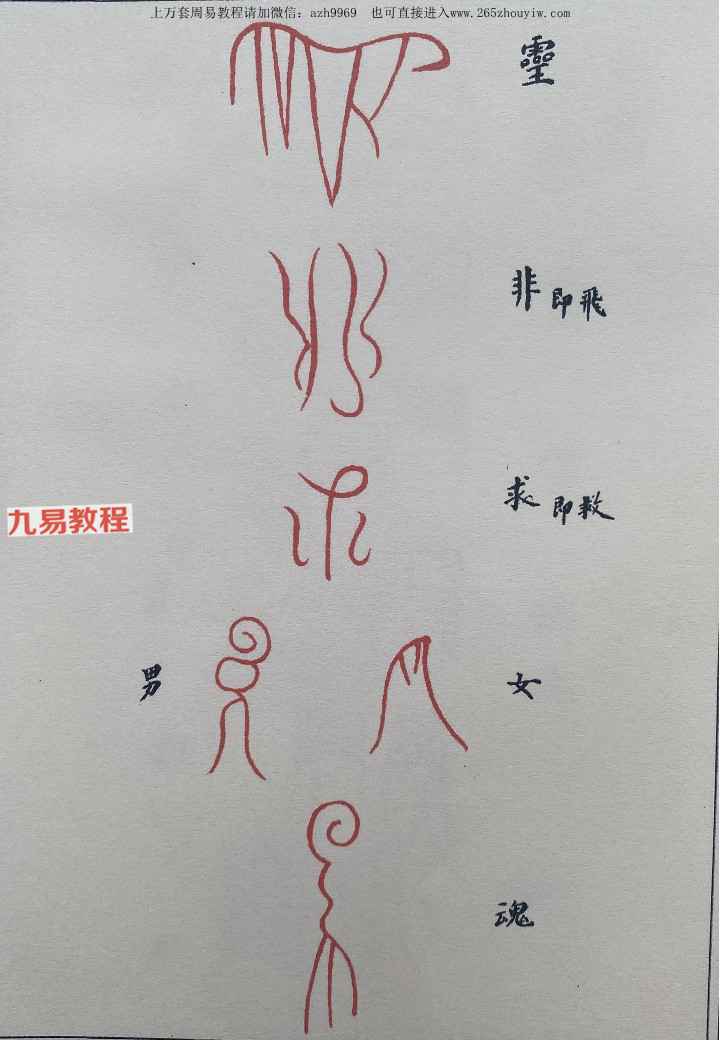 上万套周易教程请加微信：azh9969 也可直接进入www.265zhouyiw.com
靈
非即飛
求即救
九易教程
男 女
魂